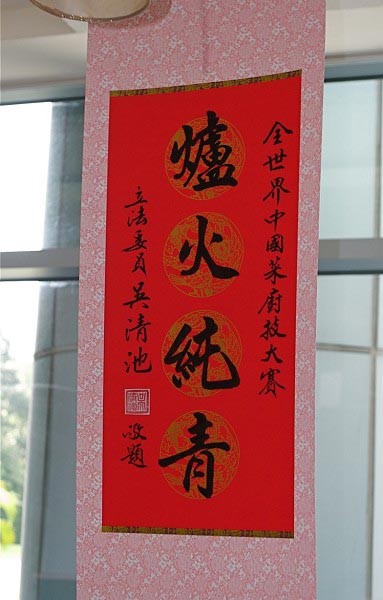 全世界中國菜廚技大賽
爐火純青
立法委員吳清池
敬題